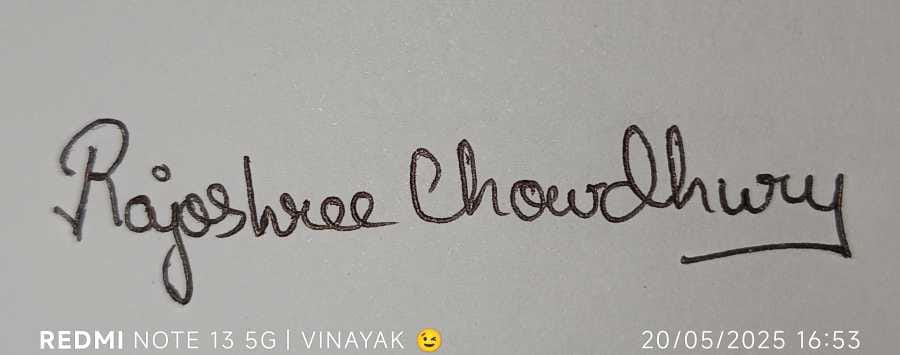 Rajoshree Chowdhury
REDMI NOTE 13 5G | VINAYAK 😉
20/05/2025 16:53